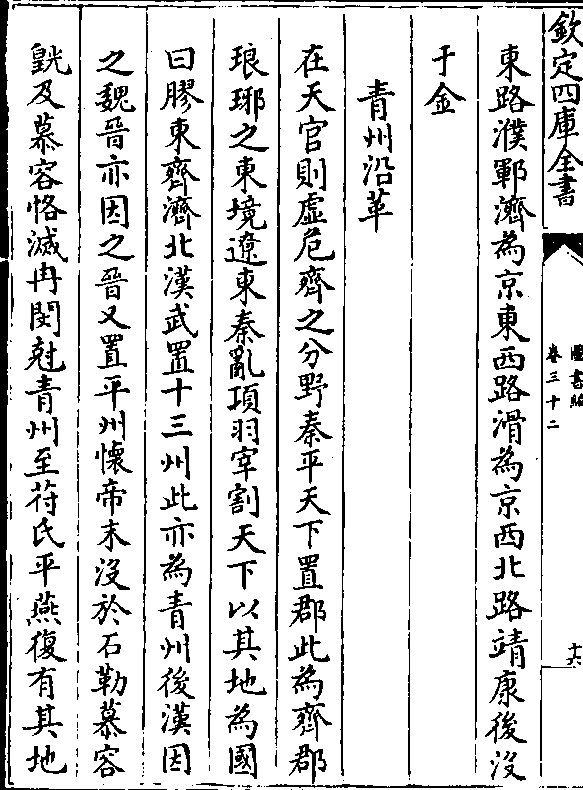 欽定四庫全書
圖書編
卷三十二
十六
東路濮鄆濟為京東西路滑為京西北路靖康後沒
于金
青州沿革
在天官則虛危齊之分野秦平天下置郡此為齊郡
琅琊之東境遼東秦亂項羽宰割天下以其地為國
曰膠東齊濟北漢武置十三州此亦為青州後漢因
之魏晉亦因之晉又置平州懷帝末沒於石勒慕容
皝及慕容恪滅冉閔尅青州至苻氏平燕復有其地